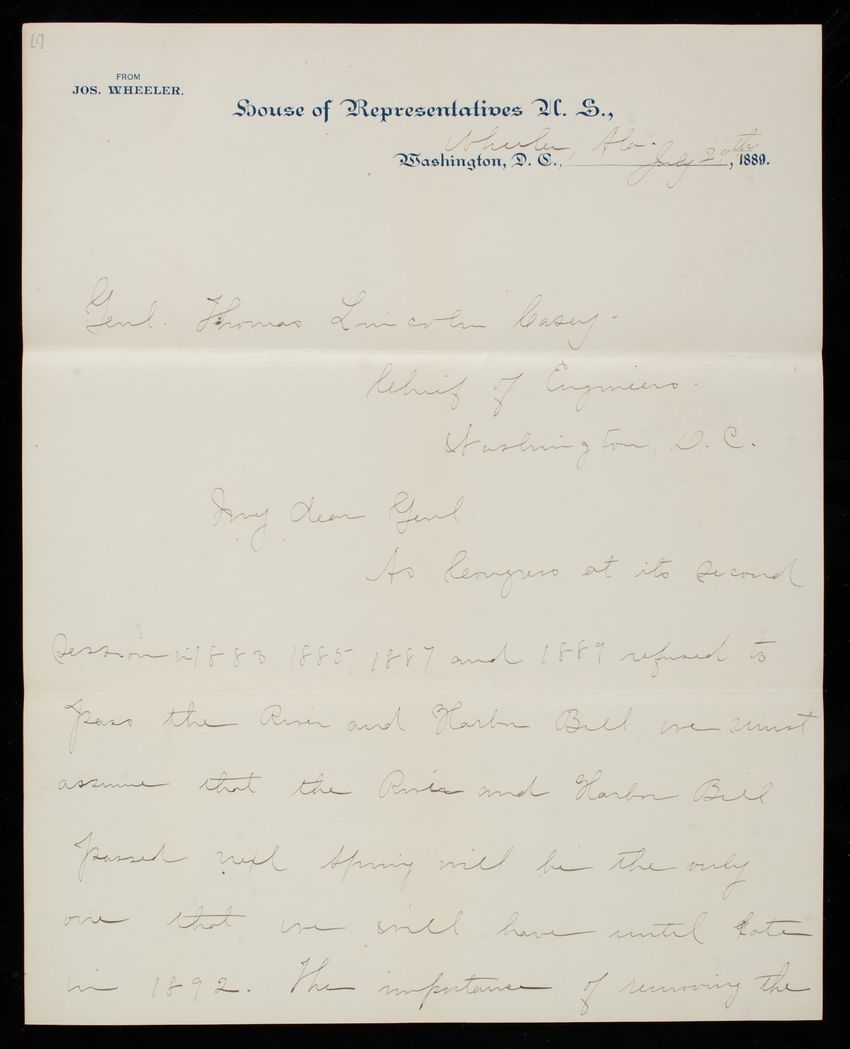 [1]
FROM
JOS. WHEELER.
House of Representatives U. S.,
Wheeler, Ala.
Washington, D. C., July 29th, 1889.
Genl. Thomas Lincoln Casey.
Chief of Engineers.
Washington, D. C.
My dear Genl
As Congress at its second
session in 1883, 1885, 1887 and 1889 refused to
pass the River and Harbor Bill, we must
assume that the River and Harbor Bill
passed next spring will be the only
one that we will have until late
in 1892. The importance of removing the